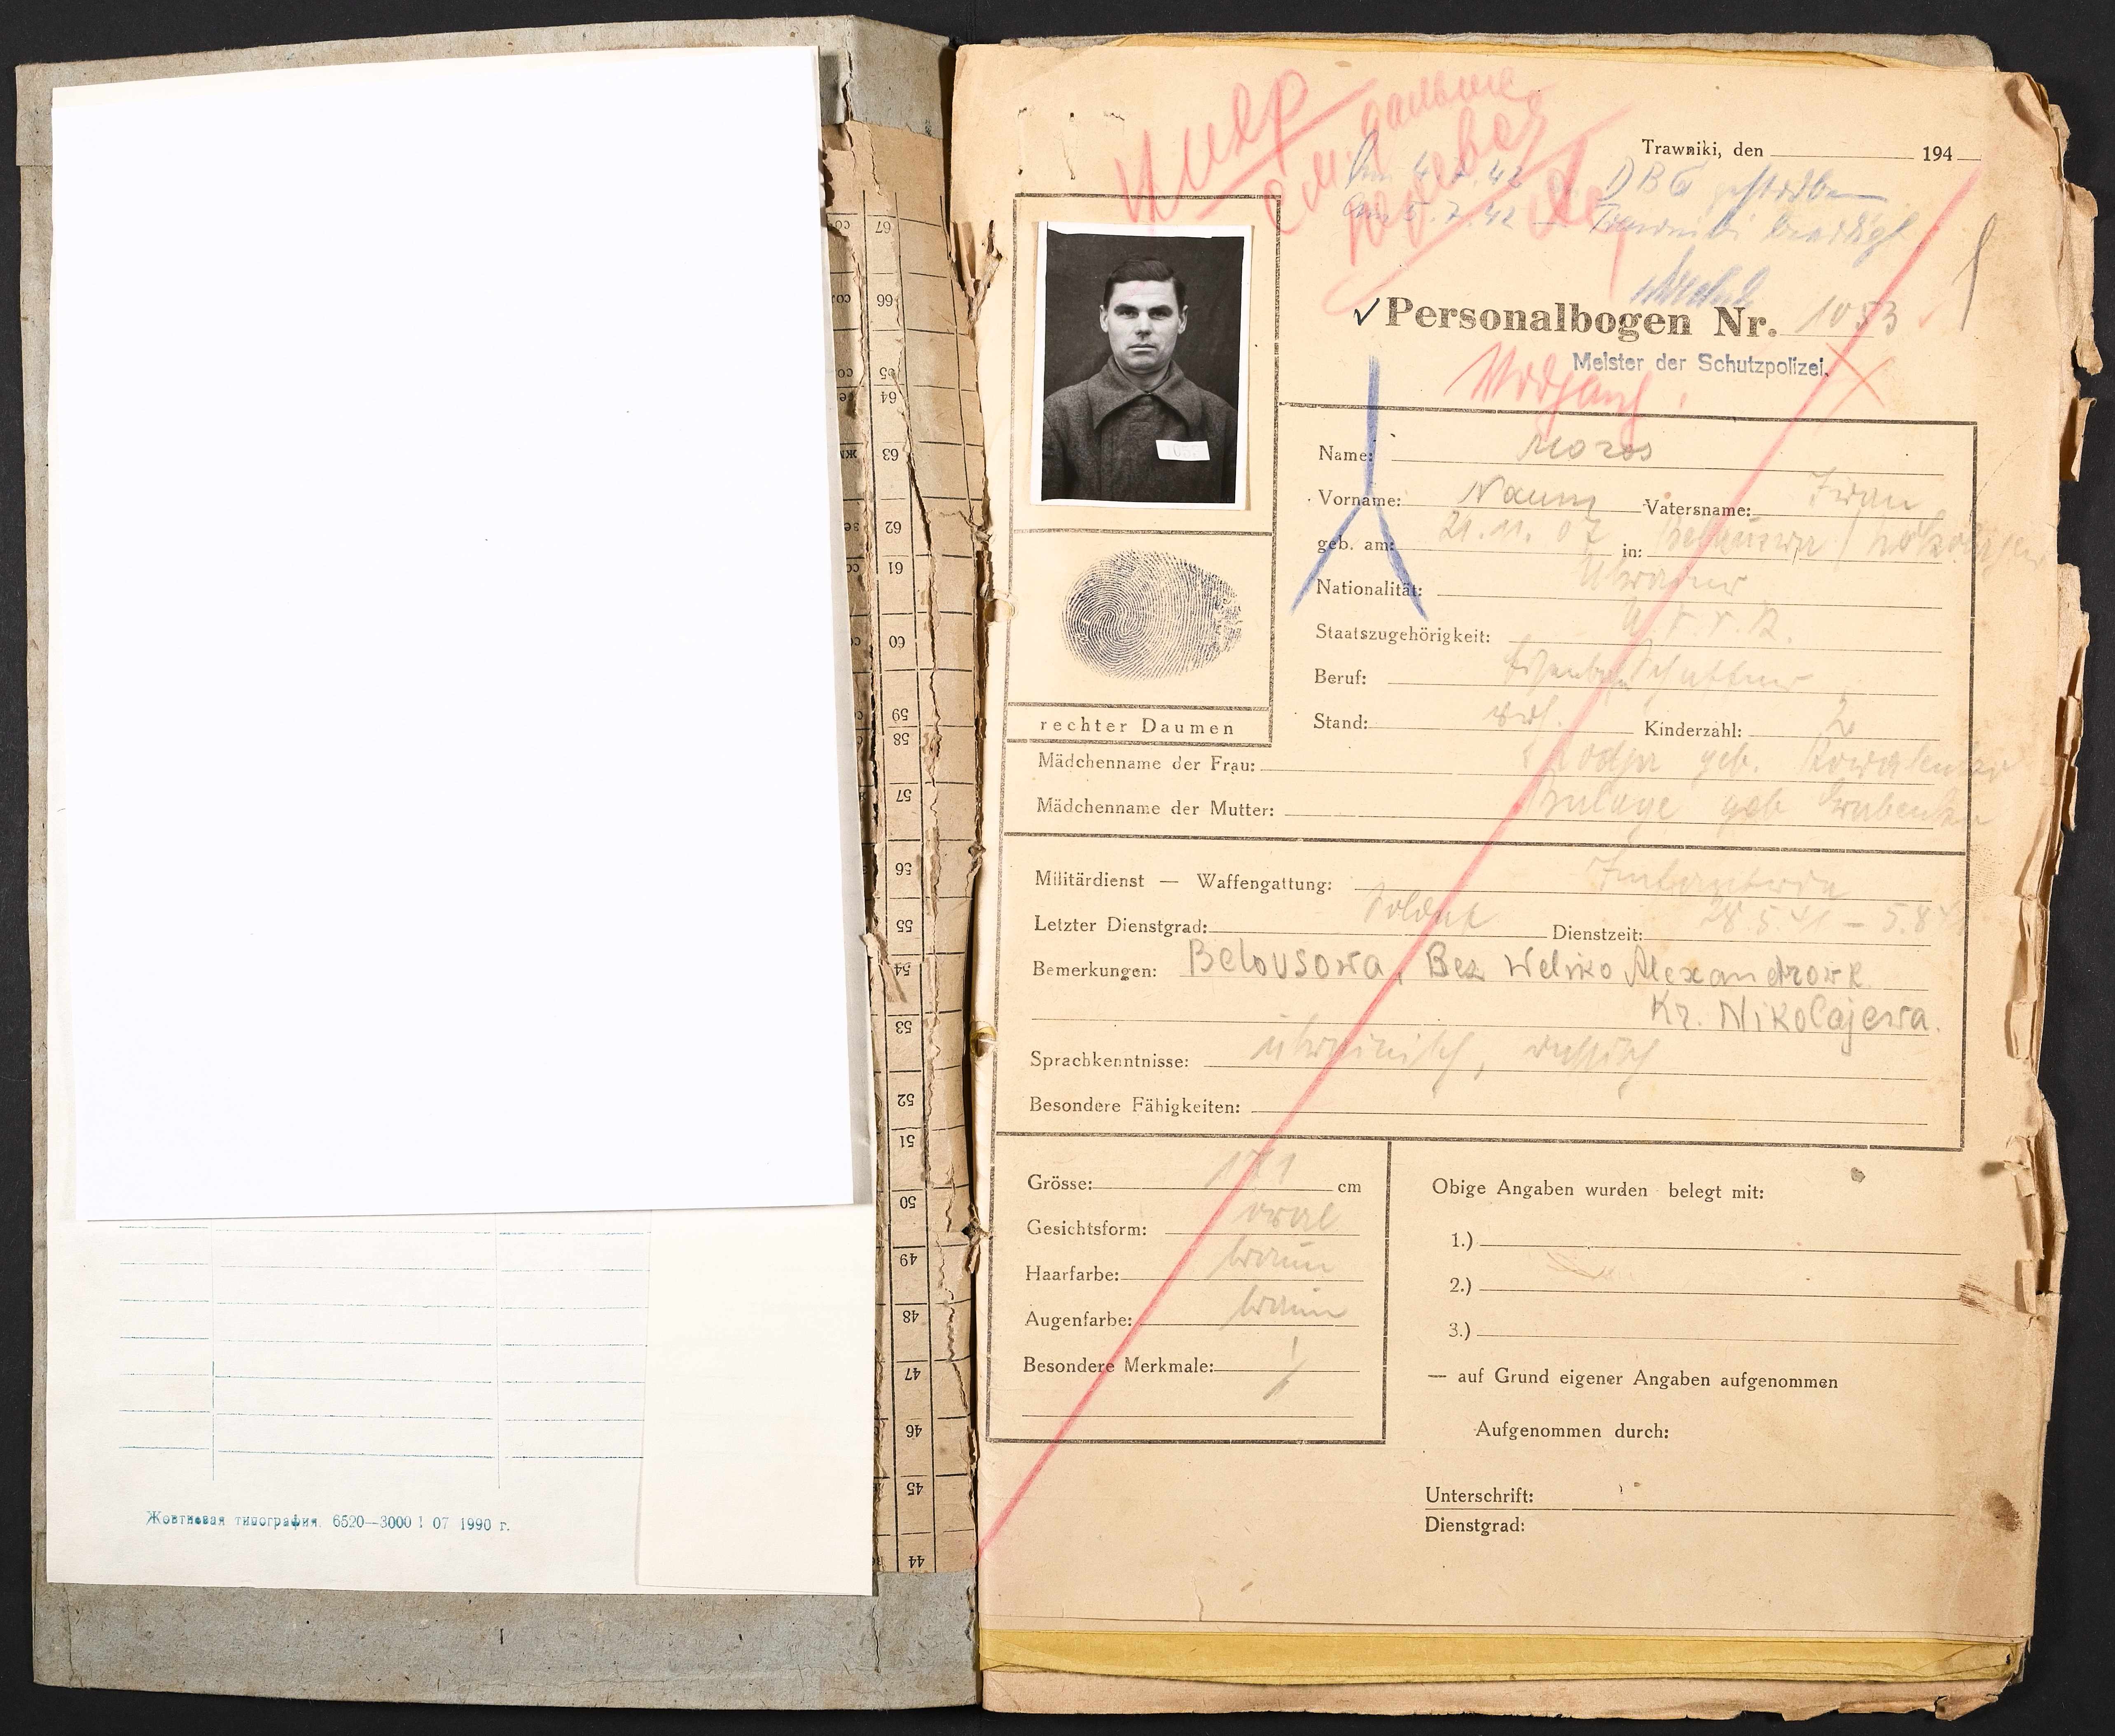 67
66
65
64
63
62
61
60
59
58
57
56
55
54
53
52
51
50
49
48
47
46
45
44
Жовтневая типография. 6520—3000 ! 07 1990 г.
Умер
см. данные
Trawniki, den 194
Am 4.7.42 gestorben
Am 5.7.42 Trawniki beerdigt
Personalbogen Nr. 1053
Meister der Schutzpolizei.
Vorgang!
rechter Daumen
Name: Moros
Vorname: Naum Vatersname: Iwan
geb. am: 21.11.07 in:
Nationalität: Ukrainer
Staatszugehörigkeit:
Beruf: Eisenbahnschaffner
Stand: verh. Kinderzahl: 2
Mädchenname der Frau: geb. Kowalenko
Mädchenname der Mutter: geb
Militärdienst — Waffengattung: Infanterie
Letzter Dienstgrad: Soldat Dienstzeit: 28.5.41 – 5.8.41
Bemerkungen: Belousowa, Bez Weliko Alexandrowk
Kr. Nikolajewa.
Sprachkenntnisse: ukrainisch, russisch
Besondere Fähigkeiten:
Grösse: 171 cm
Gesichtsform: oval
Haarfarbe: braun
Augenfarbe: braun
Besondere Merkmale: /
Obige Angaben wurden belegt mit:
1.)
2.)
3.)
— auf Grund eigener Angaben aufgenommen
Aufgenommen durch:
Unterschrift:
Dienstgrad: